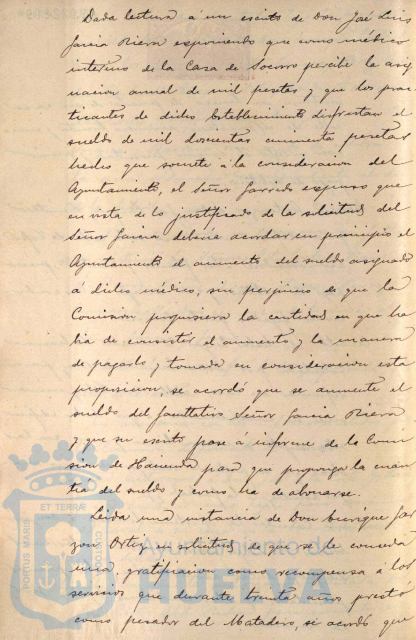 Dada lectura á un escrito de Don José Luis
García Riera exponiendo que como médico
interino de la Casa de Socorro percibe la asig
nacion annal de mil pesetas y que los prac
ticantes de dicho Establecimiento disfrutan el
sueldo de mil doscientas cincuenta pesetas
hecho que somete á la consideracion del
Ayuntamiento, el Señor Garrido expuso que
en vista de lo justificado de la solicitud del
Señor García debería acordar en principio el
Ayuntamiento el aumento del sueldo asignado
á dicho médico, sin perjuicio de que la
Comision propusiera la cantidad en que ha
bia de consistir el aumento y la manera
de pagarlo, y tomada en consideracion esta
proposicion, se acordó que se aumente el
sueldo del facultativo Señor García Riera
y que su escrito pase a informe de la Comi
sion de Hacienda para que proponga la cuan
tia del sueldo y como ha de abonarse.
Leida una instancia de Don Enrique Gar
zon Ortiz en solicitud de que se le conceda
una gratificacion como recompensa á los
servicios que durante treinta años prestó
como pesador del Matadero, se acordó que
PORTUS MARIS
ET TERRÆ
CUSTODIA
Ayuntamiento de
HUELVA